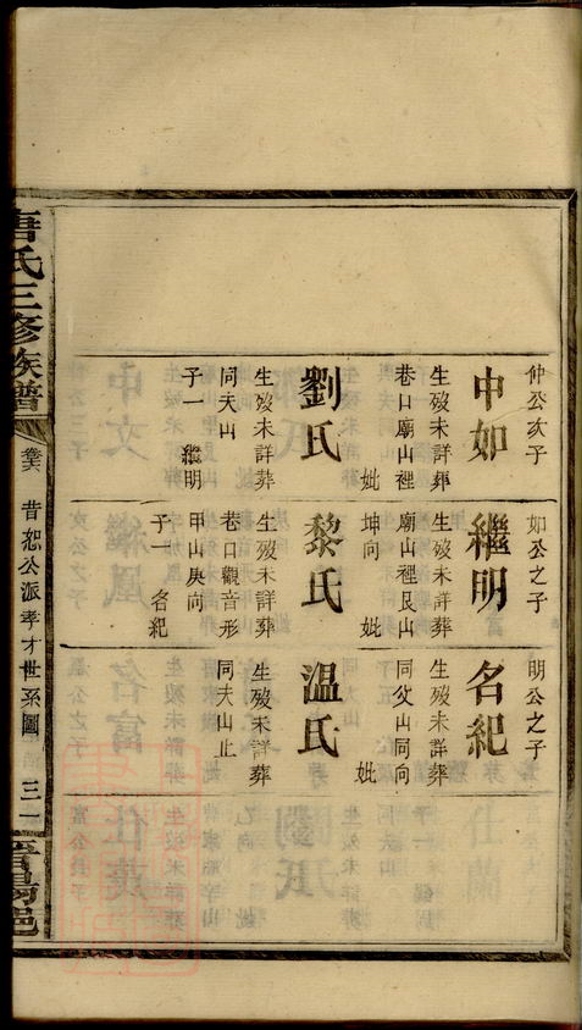 仲公次子
中如
生歿未詳葬
巷口廟山裡
妣
劉氏
生歿未詳葬
同夫山
子一 繼明
如公之子
繼明
生歿未詳葬
廟山裡艮山
坤向 妣
黎氏
生歿未詳葬
巷口觀音形
甲山庚向
子一 名紀
明公之子
名紀
生歿未詳葬
同父山同向
妣
温氏
生歿未詳葬
同夫山止
唐氏三修族譜
昔恕公派孝才世系圖
三一
晋陽邑